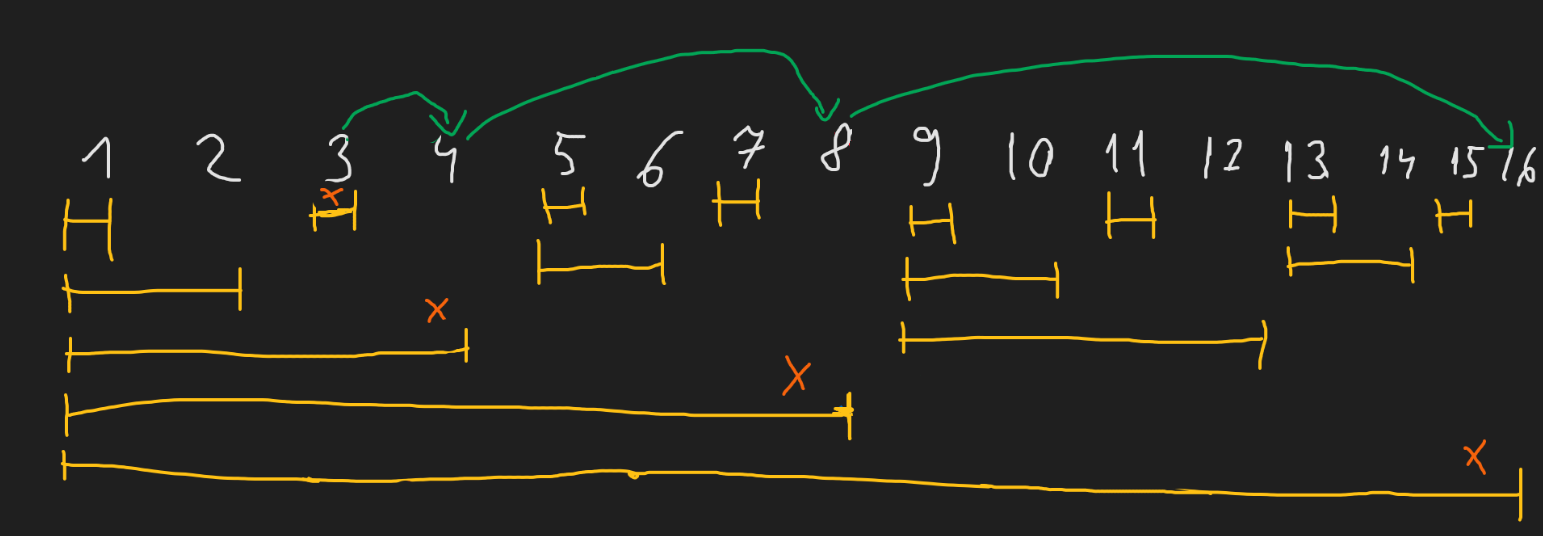 1 2 3 4 5 6 7 8 9 10 11 12 13 14 15 16
x
x
x
x